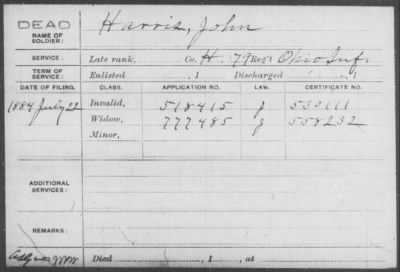 DEAD
NAME OF SOLDIER:
Harris, John
SERVICE: Late rank, Co. H. 79 Reg't Ohio Inf.
TERM OF SERVICE: Enlisted , 1 Discharged , 1
DATE OF FILING. CLASS. APPLICATION NO. LAW. CERTIFICATE NO.
1884 July 22 Invalid, 518415 J 530111
Widow, 777485 J 558232
Minor,
ADDITIONAL SERVICES:
REMARKS:
Died , 1 , at